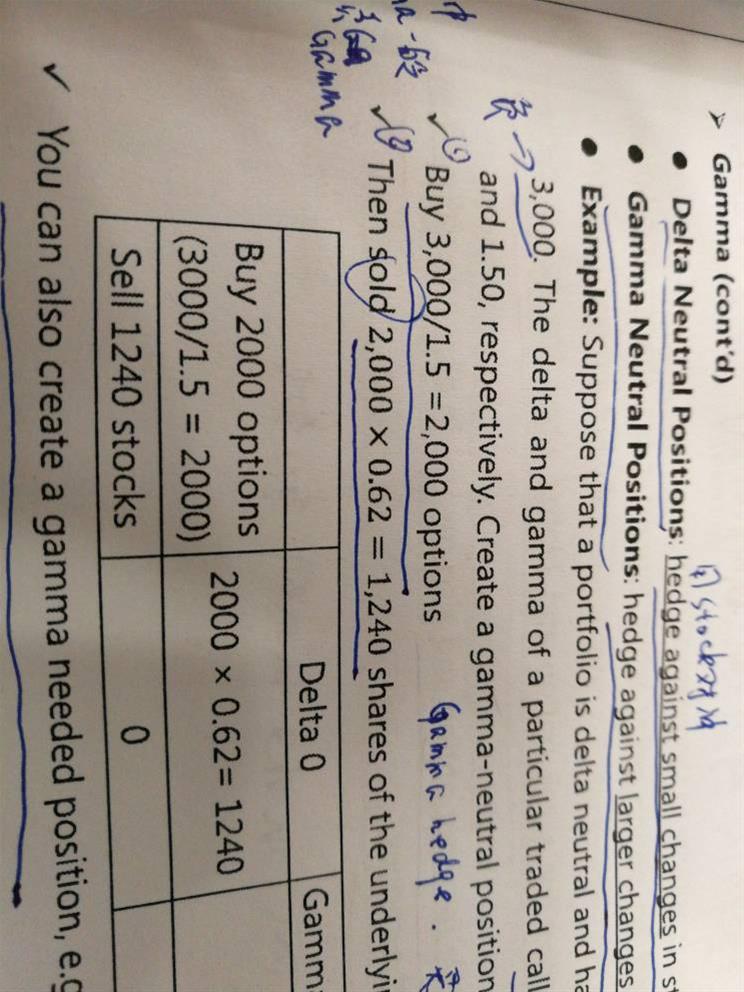 ➢ Gamma (cont'd)
用stock对冲
● Delta Neutral Positions: hedge against small changes in st
● Gamma Neutral Positions: hedge against larger changes
● Example: Suppose that a portfolio is delta neutral and ha
3,000. The delta and gamma of a particular traded call
and 1.50, respectively. Create a gamma-neutral position
✓ (1) Buy 3,000/1.5 =2,000 options
Gamma hedge.
✓ (2) Then sold 2,000 × 0.62 = 1,240 shares of the underlyi
Gamma
Delta 0 Gamm
Buy 2000 options
(3000/1.5 = 2000) 2000 × 0.62= 1240
Sell 1240 stocks 0
✓ You can also create a gamma needed position, e.g